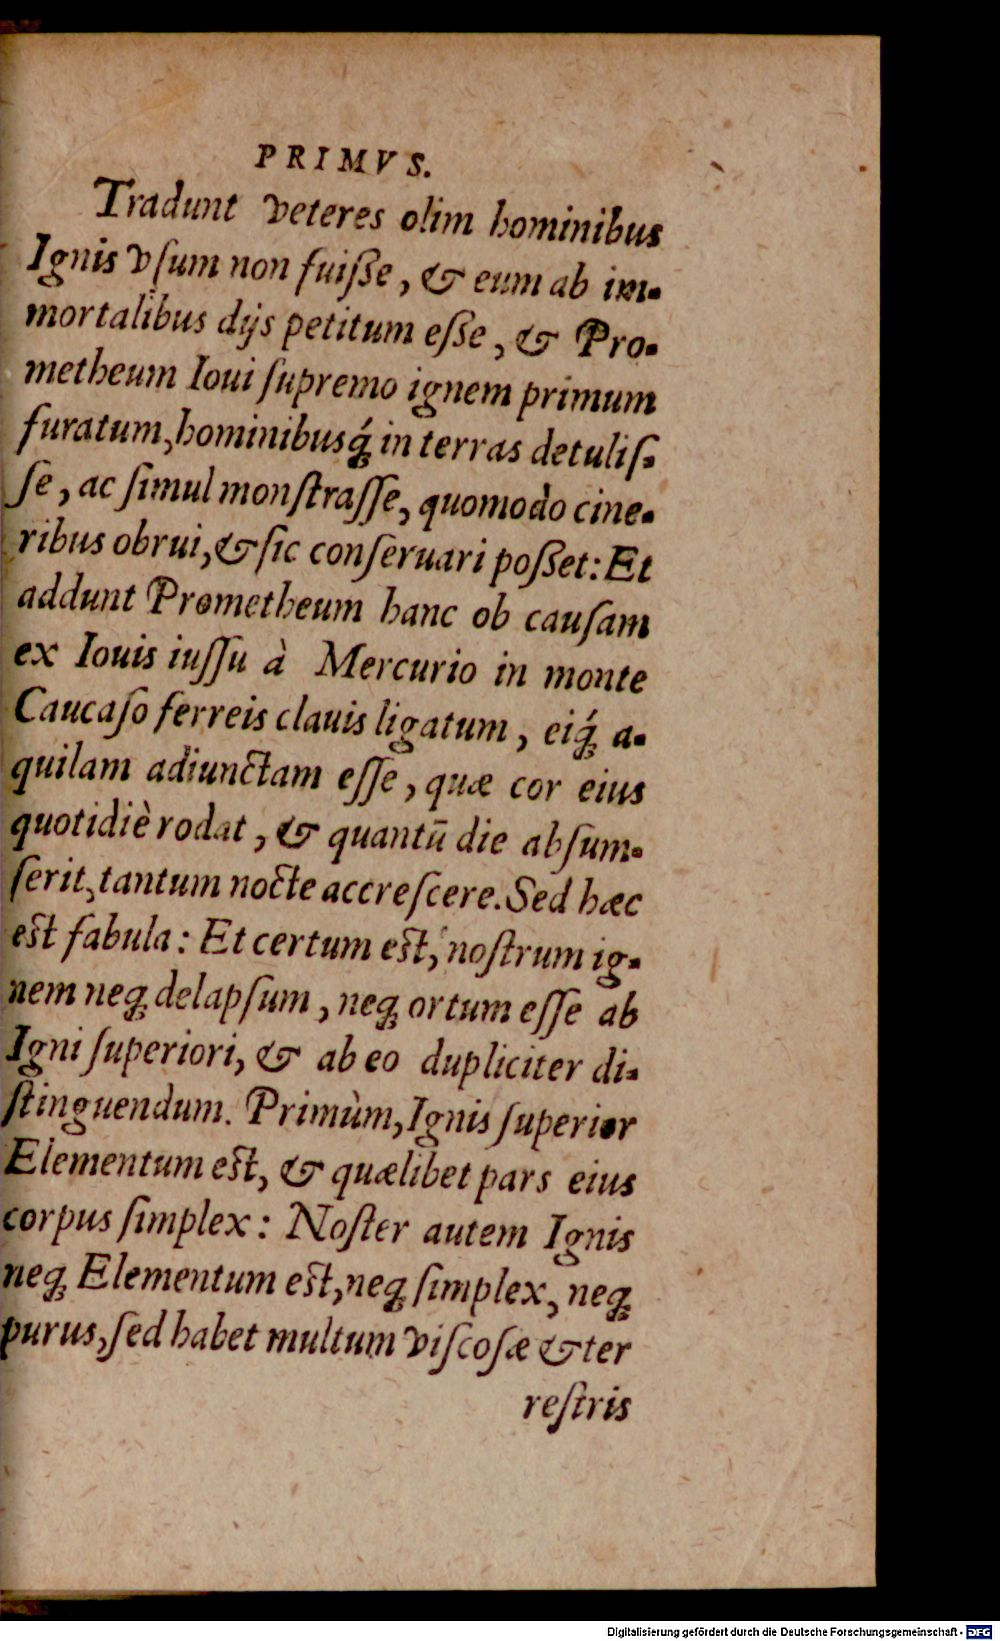 PRIMVS.
Tradunt veteres olim hominibus
Ignis vſum non fuiſſe, & eum ab im-
mortalibus dijs petitum eſſe, & Pro-
metheum Ioui ſupremo ignem primum
furatum, hominibusq́; in terras detuliſ-
ſe, ac ſimul monſtraſſe, quomodo cine-
ribus obrui, & ſic conſeruari poſſet: Et
addunt Prometheum hanc ob cauſam
ex Iouis iuſſu à Mercurio in monte
Caucaſo ferreis clauis ligatum, eiq́; a-
quilam adiunctam eſſe, quæ cor eius
quotidiè rodat, & quantū die abſum-
ſerit, tantum nocte accreſcere. Sed hæc
eſt fabula: Et certum eſt, noſtrum ig-
nem neq; delapſum, neq; ortum eſſe ab
Igni ſuperiori, & ab eo dupliciter di-
ſtinguendum. Primùm, Ignis ſuperior
Elementum eſt, & quælibet pars eius
corpus ſimplex: Noſter autem Ignis
neq; Elementum eſt, neq; ſimplex, neq;
purus, ſed habet multum viſcoſæ & ter
reſtris
Digitalisierung gefördert durch die Deutsche Forschungsgemeinschaft - DFG